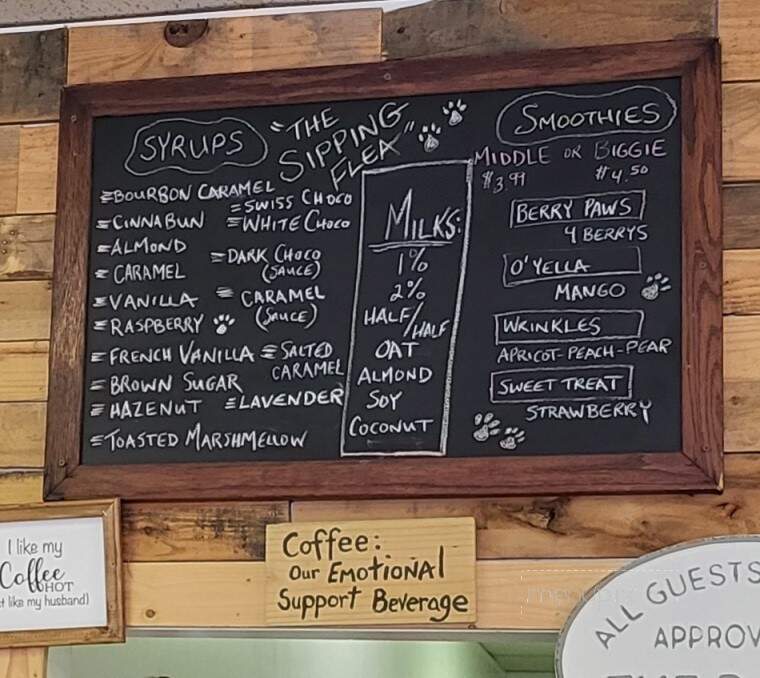 "THE
SIPPING
FLEA"
SYRUPS
BOURBON CARAMEL
SWISS CHOCO
CINNABUN
WHITE CHOCO
ALMOND
DARK CHOCO
(SAUCE)
CARAMEL
VANILLA
CARAMEL
(SAUCE)
RASPBERRY
FRENCH VANILLA
SALTED
CARAMEL
BROWN SUGAR
HAZENUT
LAVENDER
TOASTED MARSHMELLOW
MILKS:
1%
2%
HALF/HALF
OAT
ALMOND
SOY
COCONUT
SMOOTHIES
MIDDLE OR BIGGIE
$3.99 $4.50
BERRY PAWS
4 BERRYS
O'YELLA
MANGO
WRINKLES
APRICOT-PEACH-PEAR
SWEET TREAT
STRAWBERRY
I like my
Coffee
HOT
like my husband)
Coffee:
Our EMOTIONAl
Support Beverage
ALL GUESTS
APPROV